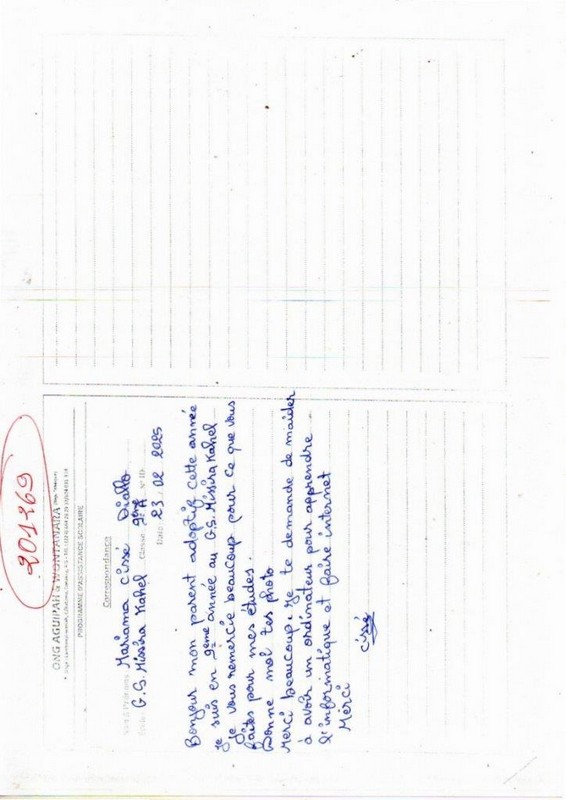 201269
ONG AGUIPAH & WONTANARA
PROGRAMME D'ASSISTANCE SCOLAIRE
Correspondance
Mariama Cissé Diallo
G.S. Missira Kahel Classe 9ème A N° ID
Date 23 02 2025
Bonjour mon parent adoptif cette année
je suis en 9ème année au G.S. Missira Kahel
Je vous remercie beaucoup pour ce que vous
faites pour mes études.
Donne moi tes photo
Merci beaucoup. Je te demande de maider
à avoir un ordinateur pour apprendre
l'informatique et faire internet
Merci
Cissé